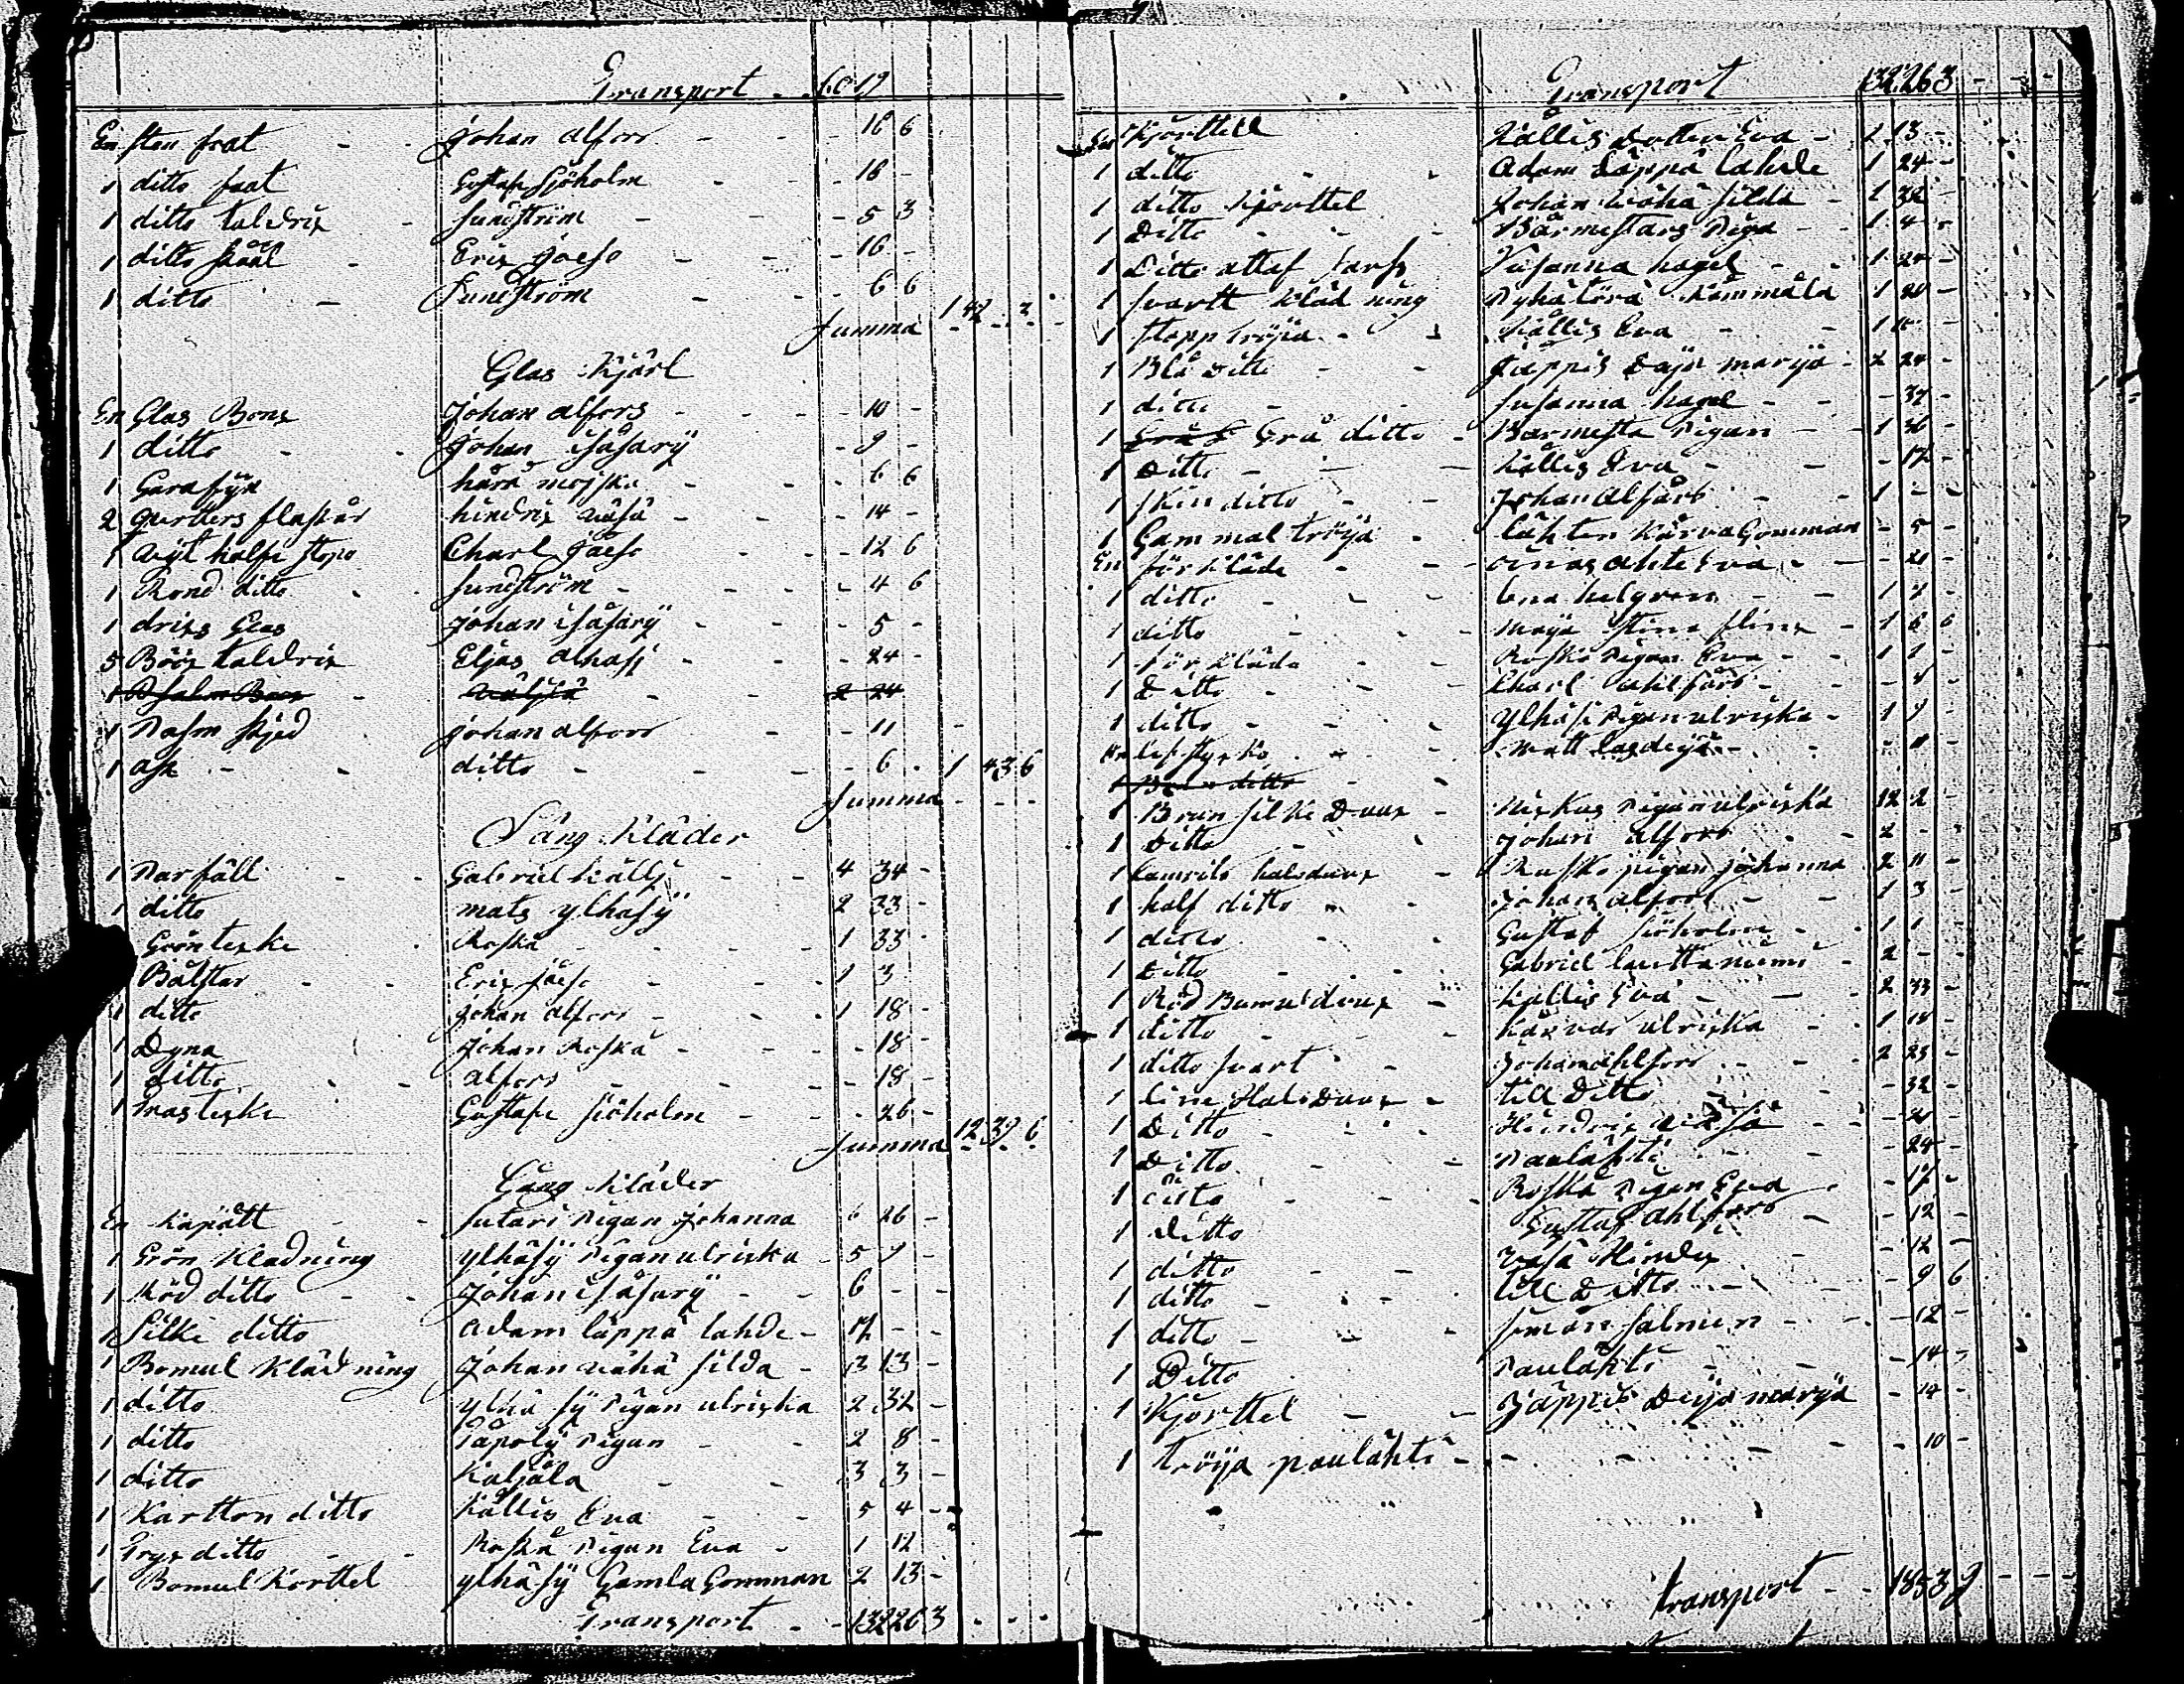 Transport - 60 19
En sten fat - Johan alfors - 16 6
1 ditto faat Gustaf Sjöholm - 16 -
1 ditto taldrix - Sundström - 5 3
1 ditto skåål - Erix Jaeso - 16 -
1 ditto - Sundström - 6 6
Summa 1 42 3
Glas Kjärl
En Glas Bonx Johan alfors - 10 -
1 ditto - Johan isåsarÿ - 9 -
1 Garafijn hårå mojska - 6 6
2 qvrtters flaskår hindrix wäsä - 14 -
1 halfs stopo Charl Jaeso - 12 6
1 Rond ditto - Sundström - 4 6
1 drixs Glas Johan isåsarÿ - 5 -
5 Böös taldrix Eljas alhasj - 24 -
2 24
1 skjed Johan alfors - 11 -
1 ask - ditto - 6 - 1 43 6
Summa
Säng Kläder
1 Narfäll - Gabriel Källj - 4 34 -
1 ditto mats ylhäsÿ 2 33 -
Gröntexke - Roskä - 1 33 -
Bålstar - Erix Jaeso - 1 3
1 ditto Johan alfors - 1 18 -
1 Dyna Johan Roskä - 18 -
1 ditto - alfors - 18 -
1 Gustafe Sjöholm - 26 -
Summa 12 39 6
Gång Kläder
En Kapått - Sutari Pigan Johanna 6 26 -
1 Grön Kladning ylhäsÿ Pigan ulriska - 5 9 -
1 Röd ditto - Johan isåsarÿ - 6 - -
1 Silke ditto Adam läppä lahde - 17 - -
1 Bomul Klädning Johan vähä silda - 3 13 -
1 ditto ylhä sÿ Pigan ulriska 2 32 -
1 ditto Påpolÿ Pigan - 2 8 -
1 ditto Kaljåla - 3 3 -
1 Kartton ditto Källis Eva - 5 4 -
1 Tryx ditto - Roskä Pigan Eva - 1 12
1 Bomul Korttel ylhäsÿ Gamla Gomman 2 13 -
Transport - 132 26 3
Transport 132 26 3 - - -
En Kjorttell Källis dotter Eva - 2 13 -
1 ditto Adam Läppä Lahde 1 24 -
1 ditto Kjorttel Johan wähä silda - 1 32 -
1 Ditto - Bärmestars Piga - 1 4 -
1 Ditto attaf Sarss Susanna hagel - 1 24 -
1 svartt Kläd ning Pyhätörä Kämmälä 1 20 -
1 stopp tröija - Källis Eva
1 Blå Ditto - Jäppis Daja marija - 2 24 -
1 ditto - susanna hagel - 37 -
1 Grå ditto - Barmesta Pigan - 1 36 -
1 Ditto - Källis Eva - 17 -
1 skin ditto - Johan alfårs - 1 - -
1 Gammal tröija - lähten Karva Gomman - 5 -
En för kläde - Eva - 20 -
1 ditto - lena helgren
1 ditto - maija stina flinx - 1 6 6
1 för kläde - Roskä Pigan Eva - 1 1 -
1 Ditto - Charl ahlfårs
1 ditto - ylhäsi Pigan ulriska - 1 9 -
matt
1 Brun silke Duux - Pigan ulriska 12 2 -
1 Ditto - Johan alfors - 2 - -
1 halsduux - Roskä pigan Johanna 2 11 -
1 half ditto - Johan alfors - 1 3 -
1 ditto - Gustaf Sjöholm - 1 1 -
1 Ditto - Gabriel lauttaniemi - 2 - -
1 Röd Bumul duux - Källis Eva - 2 33 -
1 ditto - ulriska - 1 18 -
1 ditto svart - Johan ahlfors - 2 23 -
1 line Hals Duux - till Ditto - 32 -
1 Ditto - Hindrix wäsä - 20 -
1 Ditto - Paulähti - 24 -
1 ditto - Roskä Pigan Eva - 17 -
1 Ditto Gustaf ahlfors - 12 -
1 ditto - väsä Hindrix - 12 -
1 ditto - till Ditto - 9 6
1 ditto - siman salmin - 12 -
1 Ditto Paulähti - 14 -
1 Kjorttel - Jäppis Daija marija - 14 -
1 tröija paulähti - 10 -
transport - 185 3 9 - - -